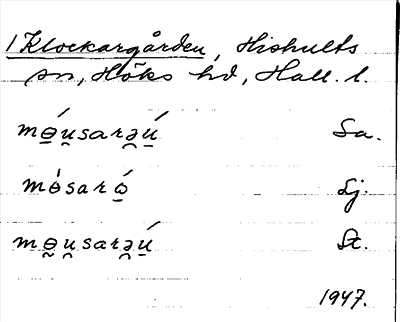 1 Klockargården, Hishults
sn, Höks hd, Hall. l.
mɵ̱́u̯sarə̯ú̱ Sa.
mɵ́saró̱ Lj.
mɵ̰u̯sarə̯ú̱ St.
1947.